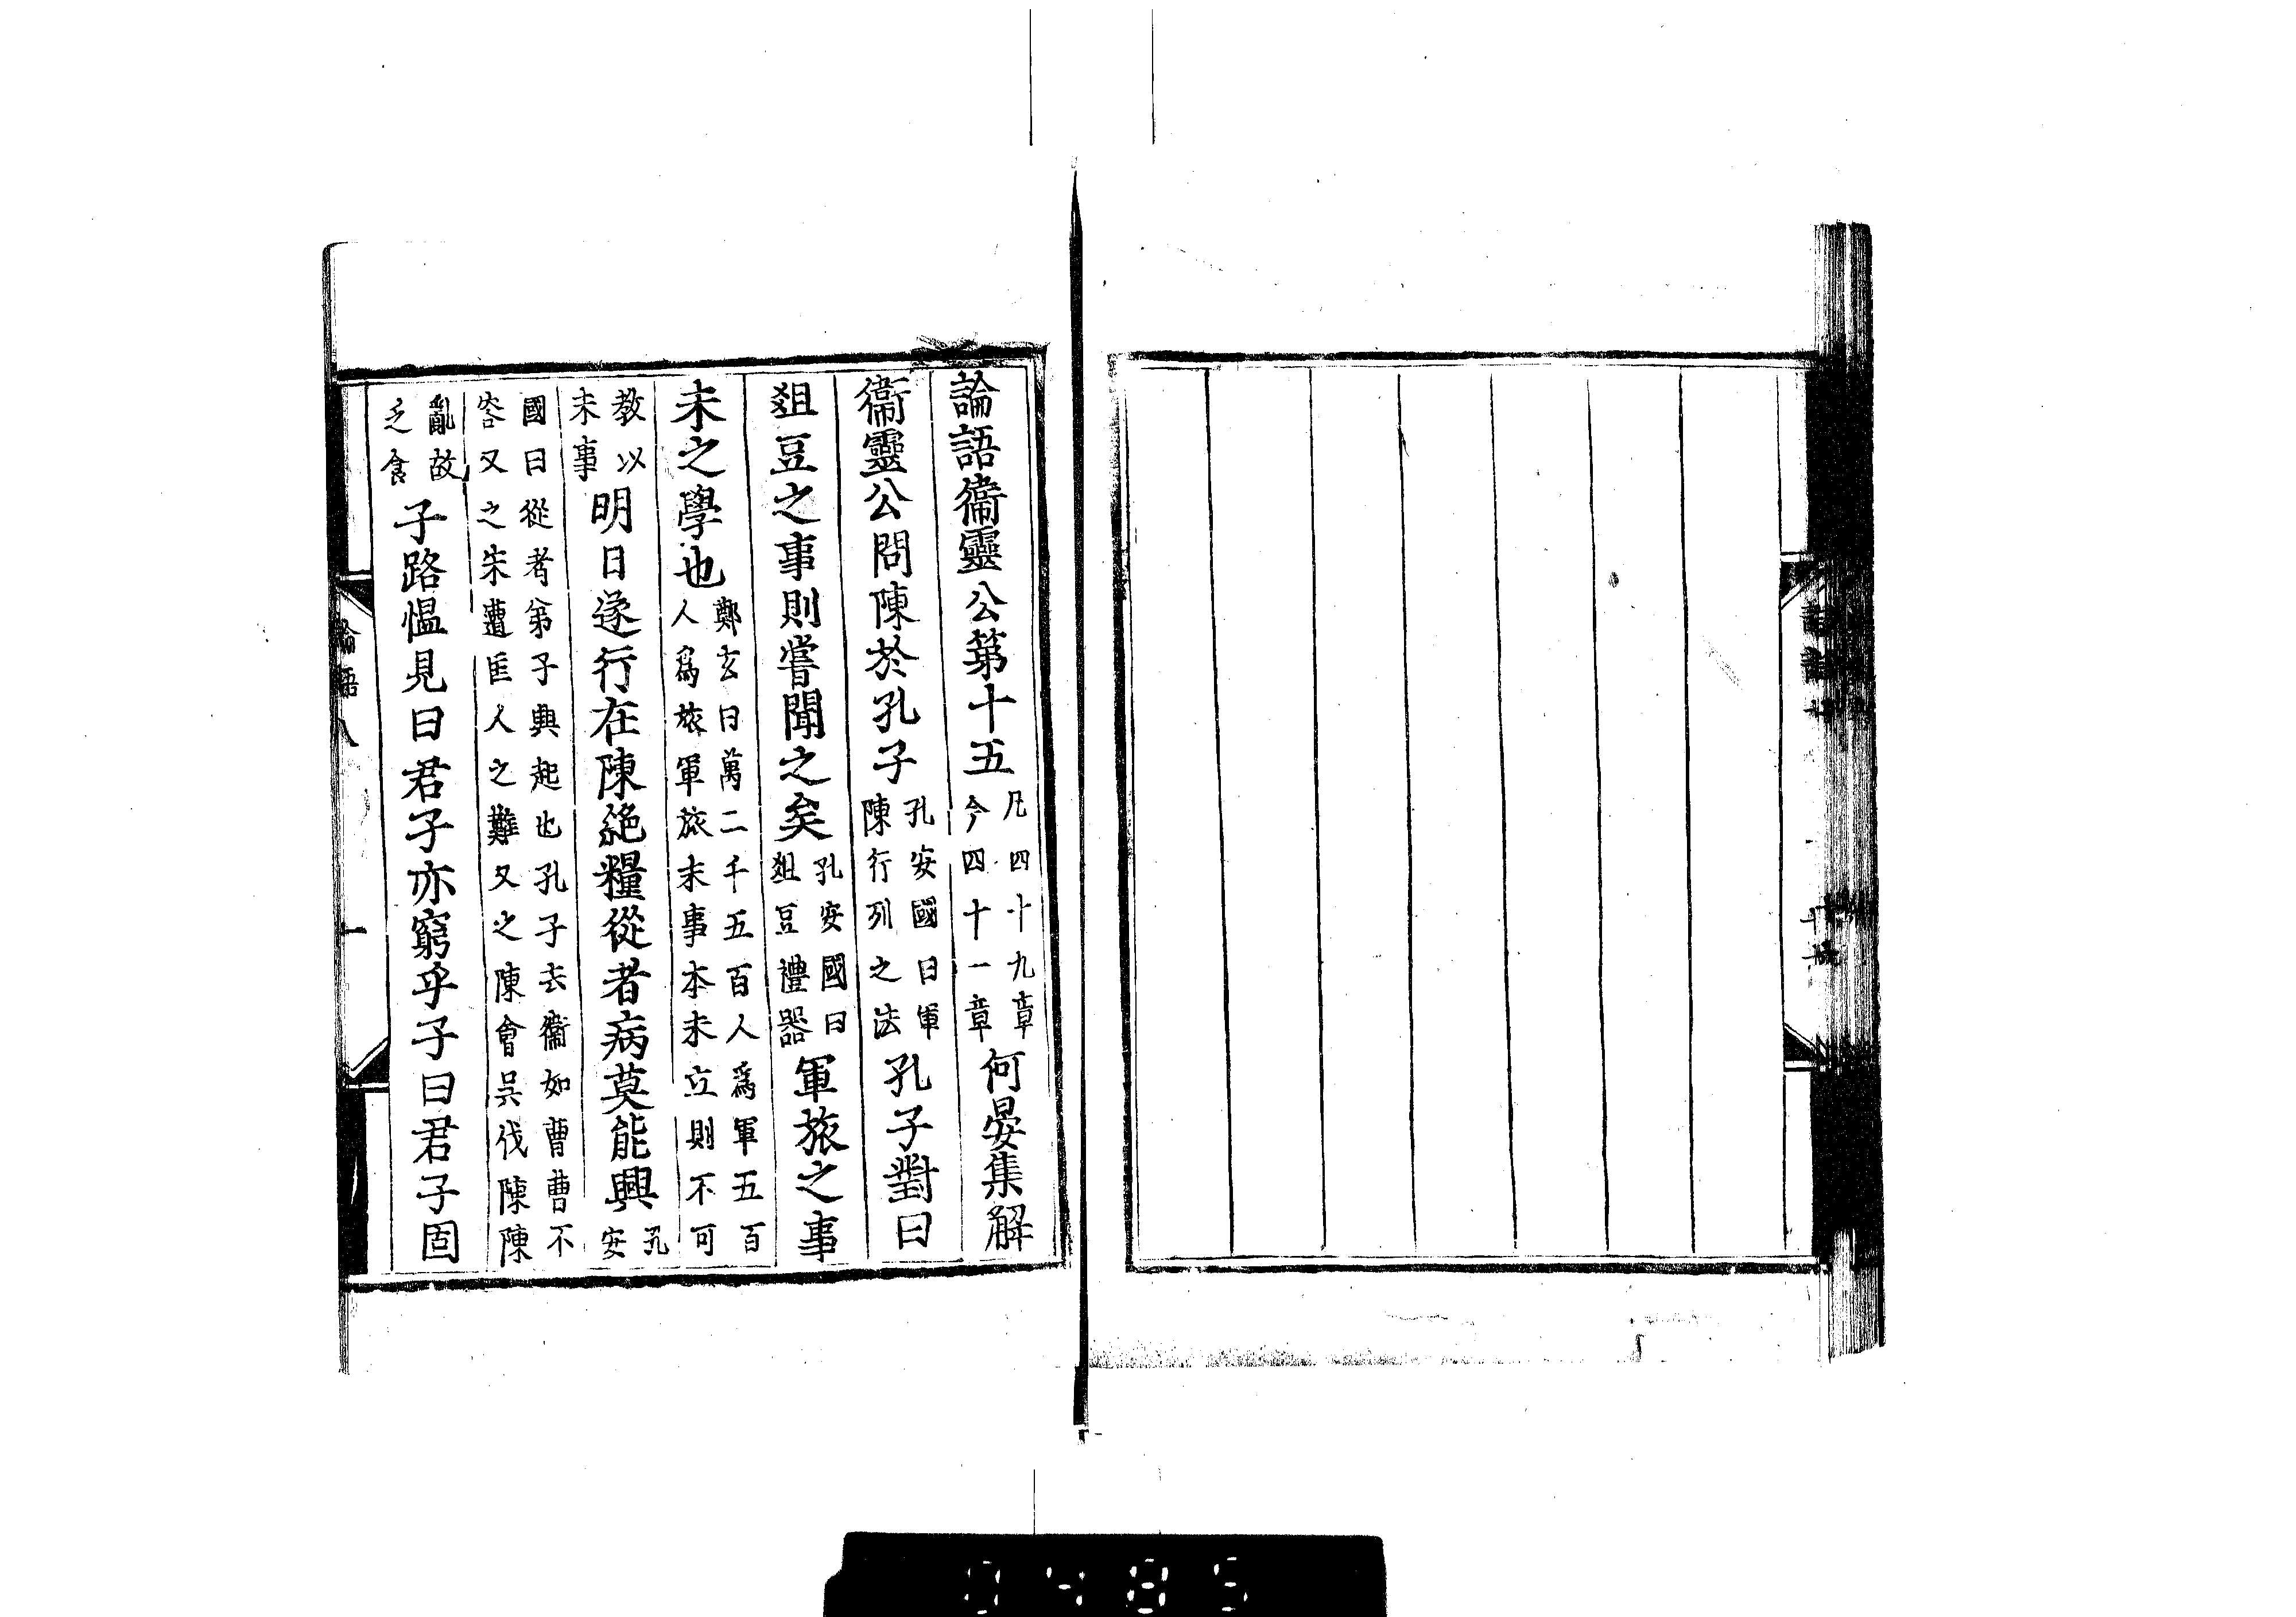 論語衞靈公第十五凡四十九章今四十一章何晏集解
衞靈公問陳於孔子孔安國曰軍陳行列之法孔子對曰
爼豆之事則嘗聞之矣孔安國曰爼豆禮器軍旅之事
未之學也鄭玄曰萬二千五百人爲軍五百人爲旅軍旅末事本未立則不可
教以末事明日遂行在陳絶糧從者病莫能興孔安
國曰從者弟子興起也孔子去衞如曹曹不容又之宋遭匡人之難又之陳會吳伐陳陳
亂故乏食子路愠見曰君子亦窮乎子曰君子固
論語八
一
0485